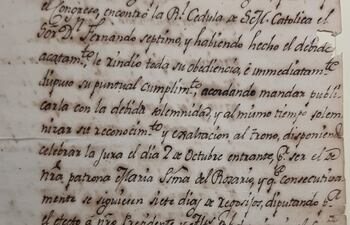 el Congreso, encontró la Rl. Cedula de S.M. Catolica el
Sor. Dn. Fernando septimo, y habiendo hecho el debido
acatamto. le rindio toda su obediencia, è immediatamte.
dispuso su puntual cumplimto. acordando mandar publi
carla con la debida solemnidad, y al mismo tiempo solem
nizar su reconocimto. y exaltacion al trono, disponiendo
celebrar la jura el dia 2 de Octubre entrante, pr. ser el de
nra. patrona Maria Sma. del Rosario, y qe. consecutiva
mente se siguiesen siete dias de regosijos, diputando pa.
el efecto a nro. Presidente y